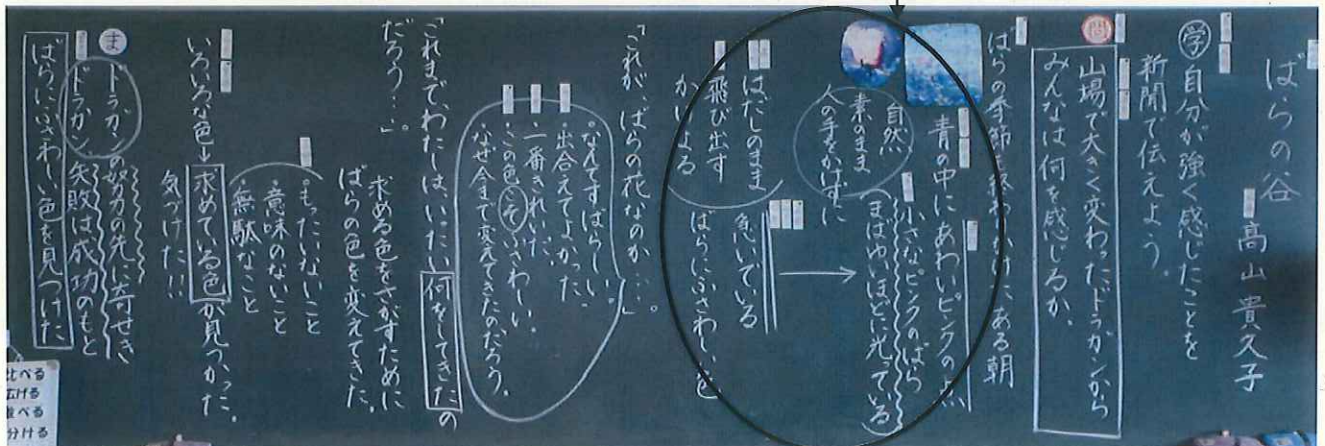 ばらの谷
高山貴久子
学 自分が強く感じたことを
新聞で伝えよう。
問 山場で大きく変わったドラガンから
みんなは何を感じるか。
ばらの季節も終わりかけたある朝
青の中にあわいピンクの点
小さなピンクのばら
まばゆいほどに光っている
自然
素のまま
人の手をかけずに
はだしのまま
飛び出す
かけよる
急いでいる
ばらにふさわしい色
「これが、ばらの花なのか…。」
。なんてすばらしい。
出合えてよかった
一番きれいだ。
この色こそふさわしい。
なぜ今まで変えてきたのだろう。
「これまで、わたしは、いったい何をしてきたの
だろう…。」
求める色をさがすために
ばらの色を変えてきた。
。もったいないこと
。意味のないこと
。無駄なこと
いろいろな色→求めている色が見つかった。
気づけた!!
ま ドラガンの努力の先に奇せき
ドラガン 失敗は成功のもと
ばらにふさわしい色を見つけた
比べる
広げる
並べる
分ける